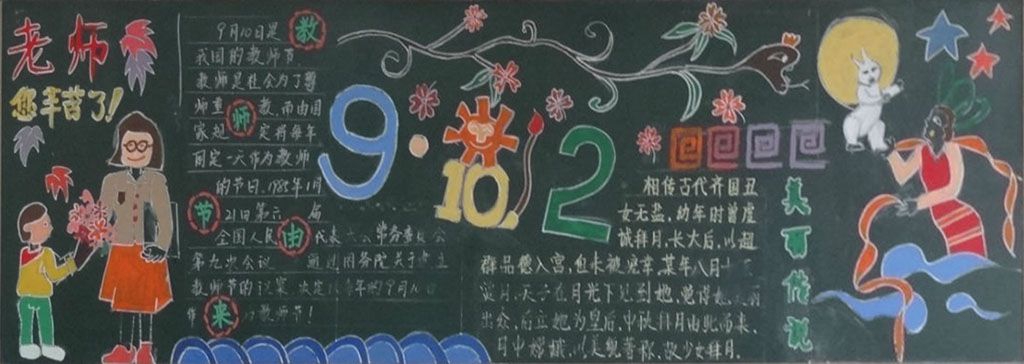 老师
您辛苦了!
教师节由来
9月10日是
我国的教师节
教师是社会为了尊
师重教,而由国
家规定将每年
固定一天作为教师
的节日,1985年1月
21日第六届
全国人民代表大会常务委员会
第九次会议 通过国务院关于建立
教师节的议案 决定 年的9月10日
教师节!
9·10.2
美百传说
相传古代齐国丑
女无盐,幼年时曾虔
诚拜月,长大后,以超
群品德入宫,但未被宠幸,某年八月十五
赏月,天子在月光下见到她,觉得她美丽
出众,后立她为皇后,中秋拜月由此而来,
月中嫦娥,以美貌著称,故少女拜月.